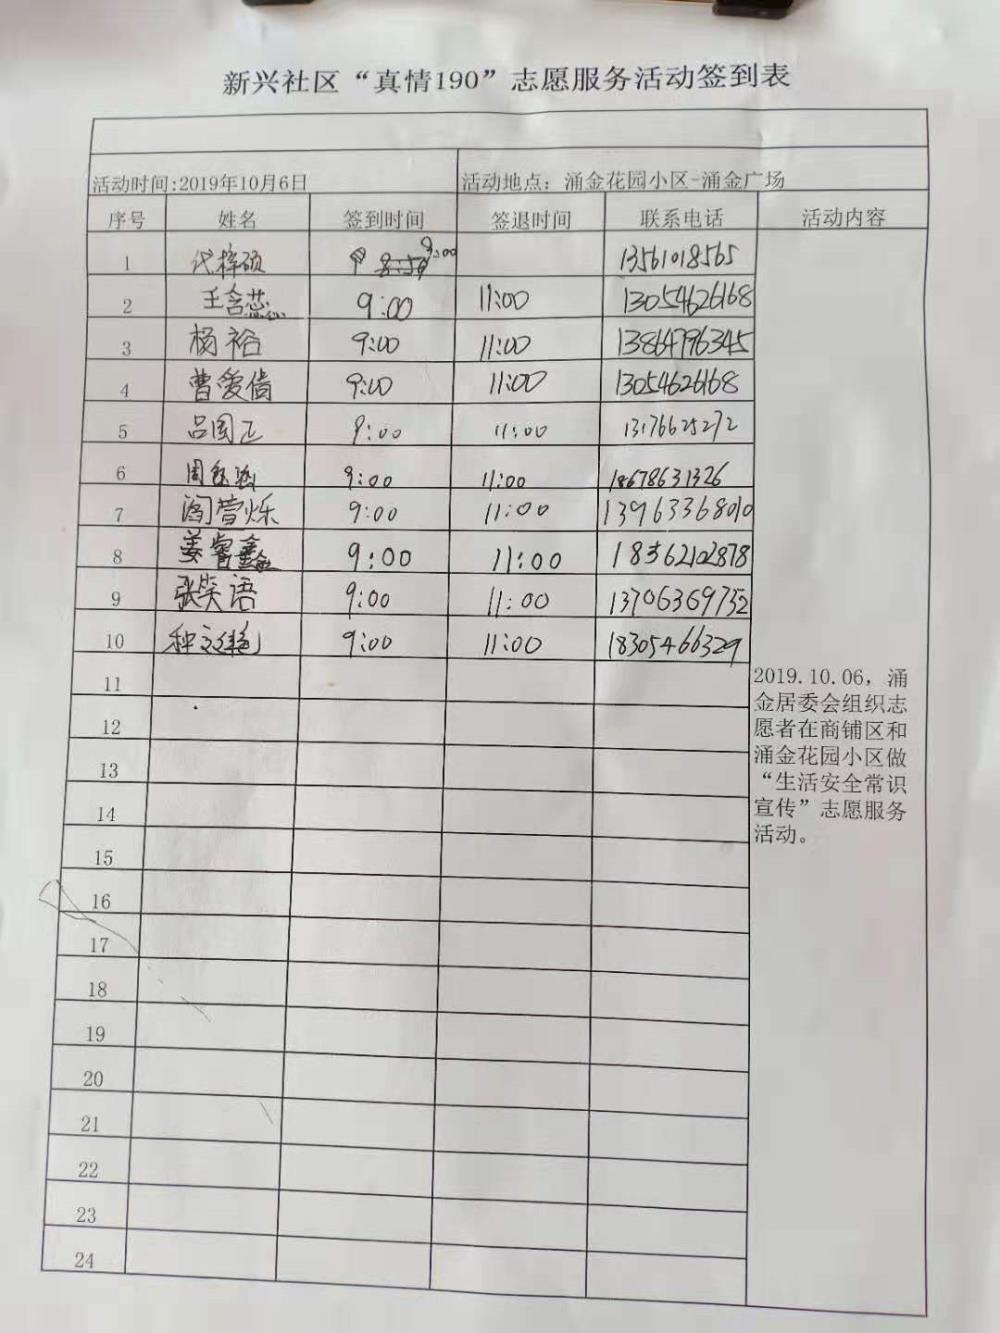 新兴社区“真情190”志愿服务活动签到表
活动时间:2019年10月6日 活动地点：涌金花园小区-涌金广场
序号 姓名 签到时间 签退时间 联系电话 活动内容
1 代梓硕 9:00 13561018565
2 王含蕊 9:00 11:00 13054626168
3 杨裕 9:00 11:00 13864796345
4 曹爱倩 9:00 11:00 13054626168
5 吕国正 9:00 11:00 13176625272
6 周 9:00 11:00 18678631326
7 阎萱烁 9:00 11:00 13963368010
8 姜睿鑫 9:00 11:00 18362102878
9 张笑语 9:00 11:00 13706369752
10 种文艳 9:00 11:00 18305466329
11
12
13
14
15
16
17
18
19
20
21
22
23
24
2019.10.06，涌
金居委会组织志
愿者在商铺区和
涌金花园小区做
“生活安全常识
宣传”志愿服务
活动。